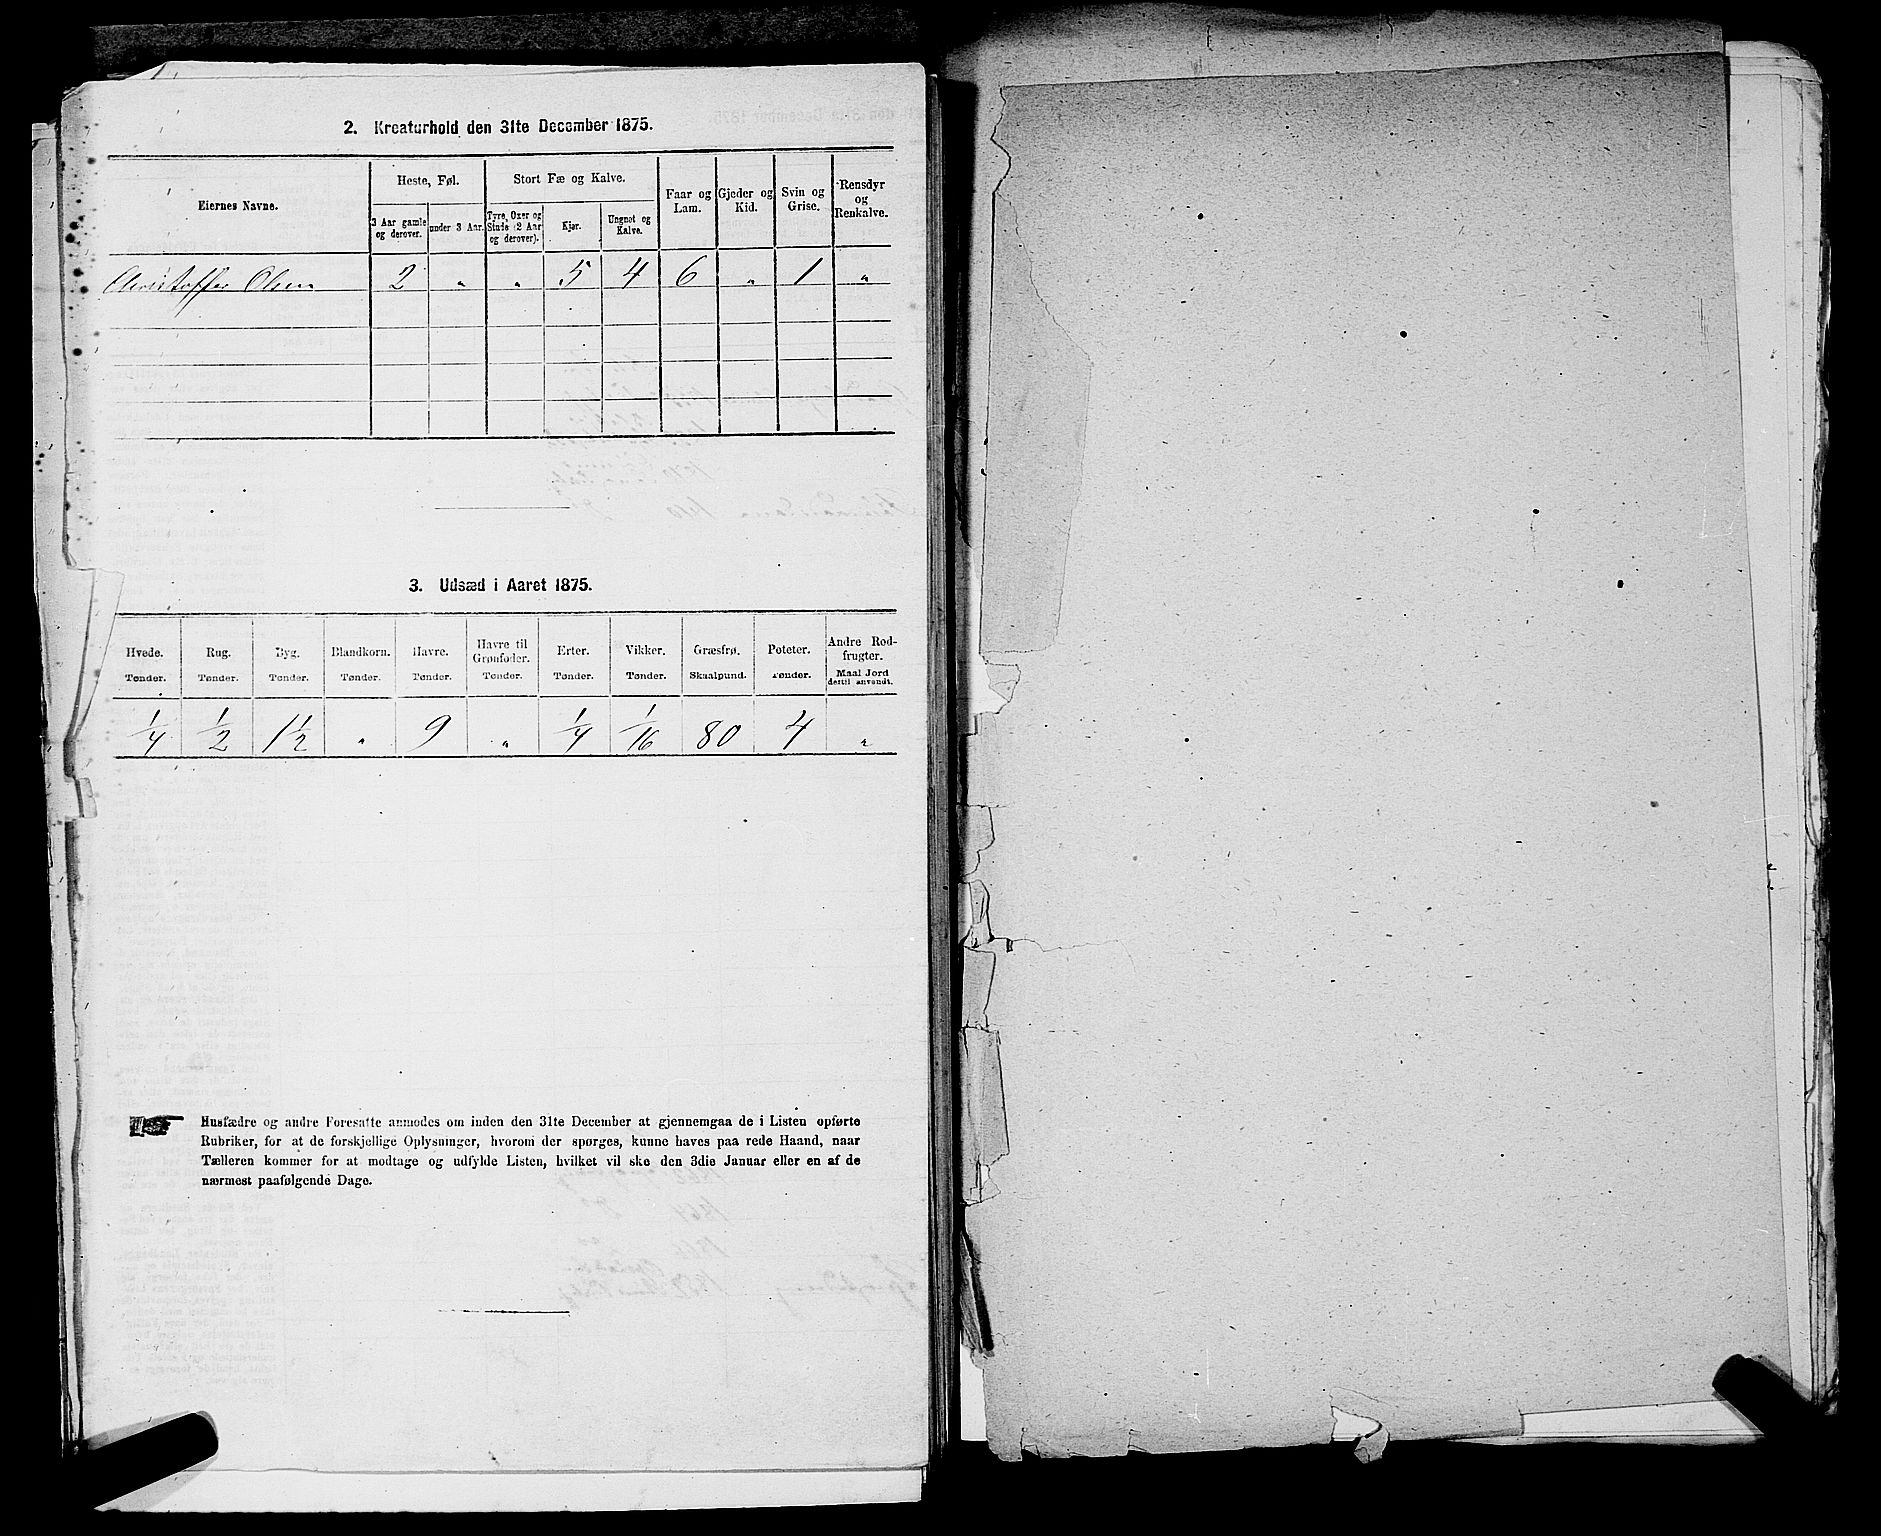 2. Kreaturhold den 31te December 1875.
Eiernes Navne. | Heste, Føl. | Stort Fæ og Kalve. | Faar og Lam. | Gjeder og Kid. | Svin og Grise. | Rensdyr og Renkalve.
3 Aar gamle og derover. | under 3 Aar. | Tyre, Oxer og Stude (2 Aar og derover). | Kjør. | Ungnøt og Kalve.
Christoffer Olsen | 2 | „ | „ | 5 | 4 | 6 | „ | 1 | „
3. Udsæd i Aaret 1875.
Hvede. | Rug. | Byg. | Blandkorn. | Havre. | Havre til Grønfoder. | Erter. | Vikker. | Græsfrø. | Poteter. | Andre Rodfrugter.
Tønder. | Tønder. | Tønder. | Tønder. | Tønder. | Tønder. | Tønder. | Tønder. | Skaalpund. | Tønder. | Maal Jord dertil anvendt.
1/4 | 1/2 | 1 1/2 | „ | 9 | „ | 1/4 | 1/16 | 80 | 4 | „
Husfædre og andre Foresatte anmodes om inden den 31te December at gjennemgaa de i Listen opførte
Rubriker, for at de forskjellige Oplysninger, hvorom der spørges, kunne haves paa rede Haand, naar
Tælleren kommer for at modtage og udfylde Listen, hvilket vil ske den 3die Januar eller en af de
nærmest paafølgende Dage.